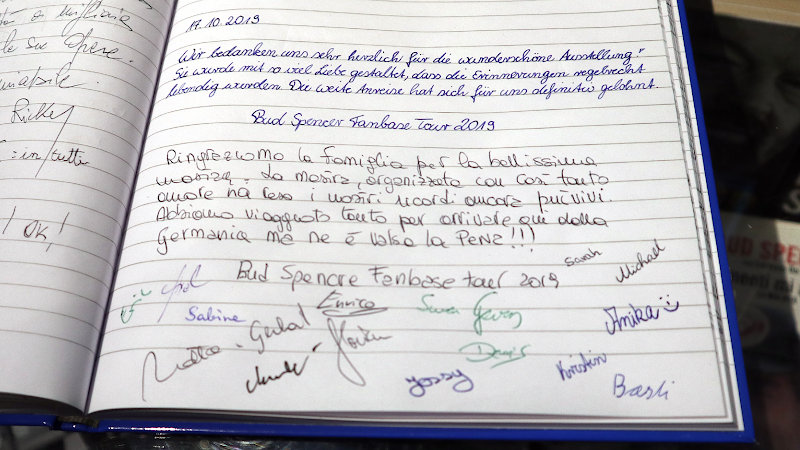 le sue opere.
Ricky
: in tutti
! OK!
17.10.2019
Wir bedanken uns sehr herzlich für die wunderschöne Ausstellung!
Sie wurde mit so viel Liebe gestaltet, dass die Erinnerungen regelrecht
lebendig wurden. Die weite Anreise hat sich für uns definitiv gelohnt.
Bud Spencer Fanbase Tour 2019
Ringraziamo la famiglia per la bellissima
mostra. La mostra, organizzata con così tanto
amore ha reso i nostri ricordi ancora più vivi.
Abbiamo viaggiato tanto per arrivare qui dalla
Germania ma ne é valsa la pena!!!
Bud Spencer Fanbase tour 2019
Sarah
Michael
Enrico
Sabine
Anika
Denis
Jossy
Kristin
Basti
UD SPE